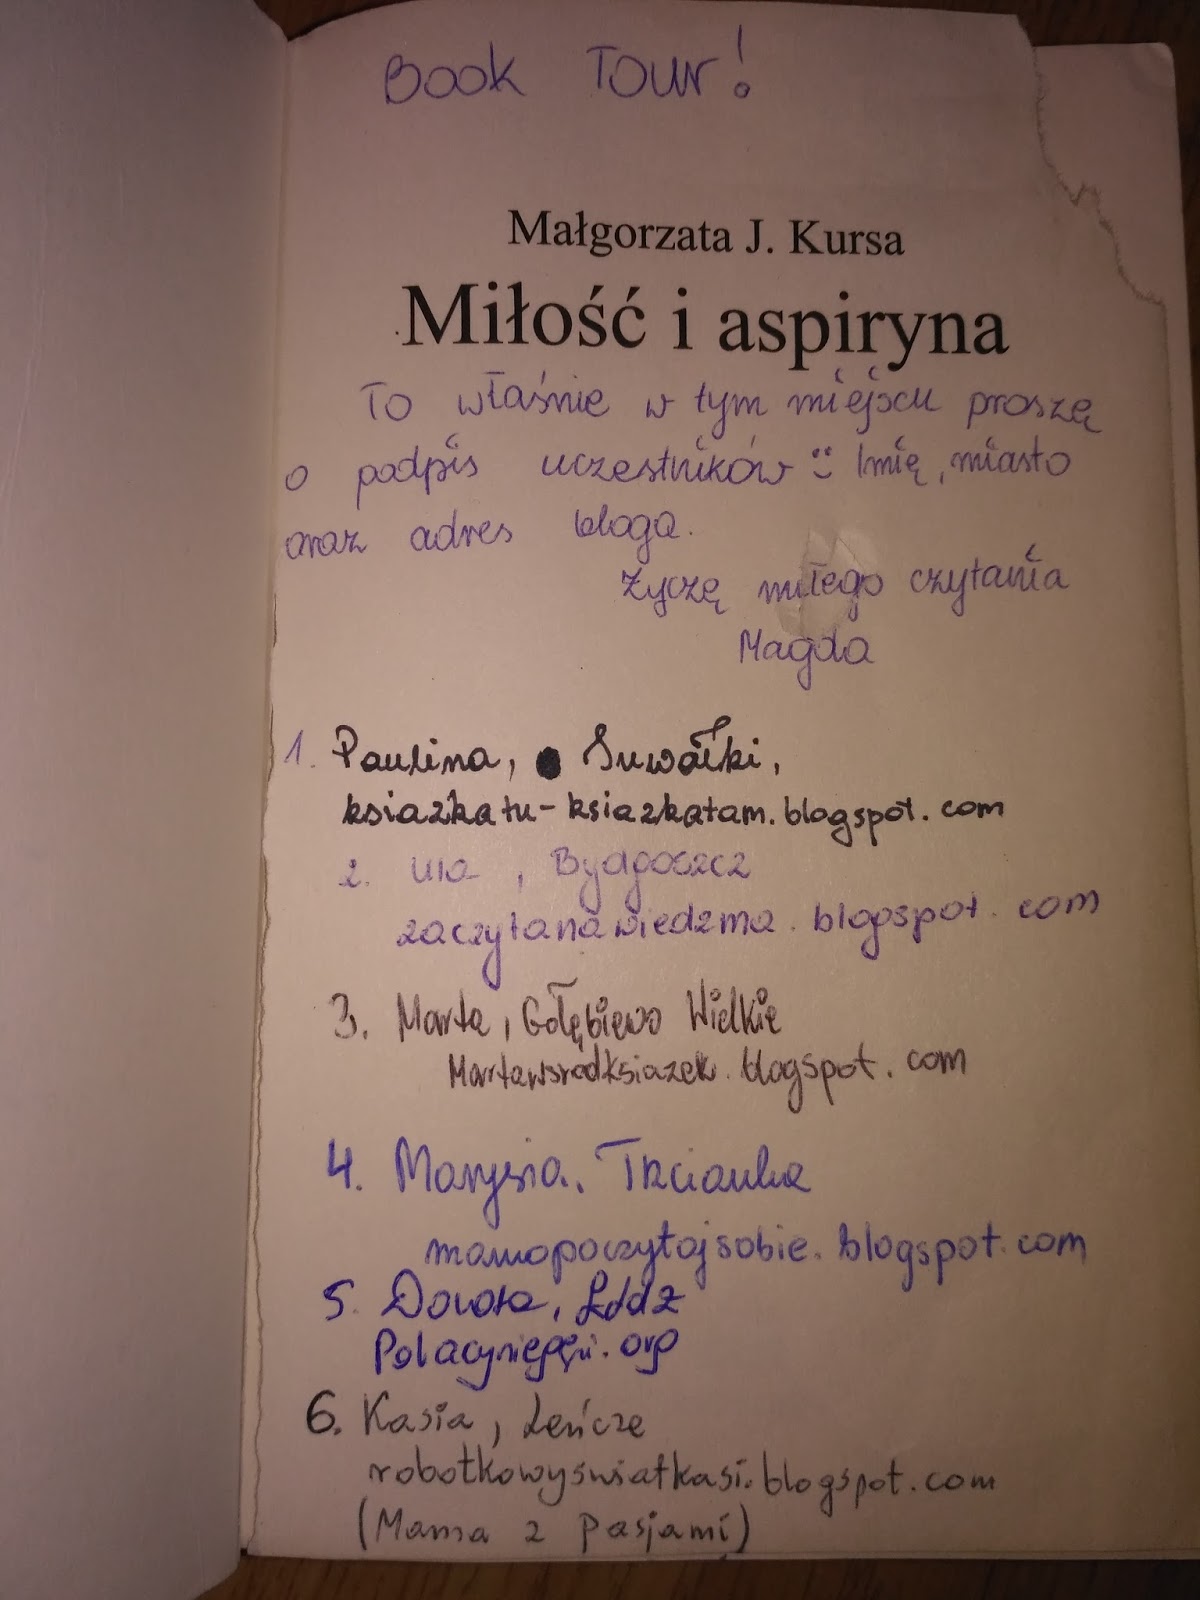 Book Tour!
Małgorzata J. Kursa
Miłość i aspiryna
To właśnie w tym miejscu proszę
o podpis uczestników :) Imię, miasto
oraz adres bloga.
Życzę miłego czytania
Magda
1. Paulina, Suwałki,
ksiazkatu-ksiazkatam.blogspot.com
2. Ula, Bydgoszcz
zaczytanawiedzma.blogspot.com
3. Marta, Gołębiewo Wielkie
Martawsrodksiazek.blogspot.com
4. Marysia, Trzcianka
mamopoczytajsobie.blogspot.com
5. Dorota, Łódź
Polacyniegęsi.org
6. Kasia, Leńcze
robotkowyswiatkasi.blogspot.com
(Mama z Pasjami)